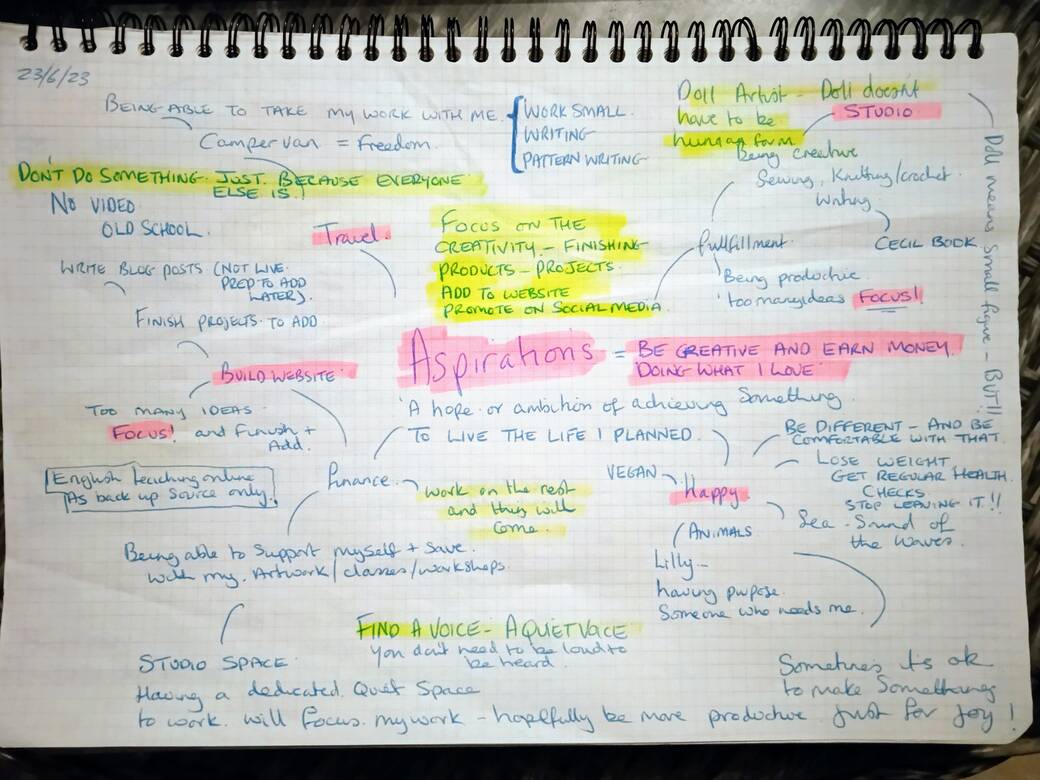 23/6/23
BEING ABLE TO TAKE MY WORK WITH ME.
WORK SMALL.
WRITING
PATTERN WRITING
Campervan = freedom.
Doll Artist - Doll doesnt
have to be
human form
STUDIO
Doll means small figure - BUT!!
DON'T DO SOMETHING JUST BECAUSE EVERYONE
ELSE IS!
NO VIDEO
OLD SCHOOL.
Travel.
WRITE BLOG POSTS (NOT LIVE.
PREP TO ADD
LATER).
FINISH PROJECTS TO ADD
BUILD WEBSITE
TOO MANY IDEAS
FOCUS! and Finish +
Add.
FOCUS ON THE
CREATIVITY - FINISHING
PRODUCTS - PROJECTS.
ADD TO WEBSITE
PROMOTE ON SOCIAL MEDIA.
Being creative
Sewing, Knitting/crochet.
Writing
CECIL BOOK
fulfillment.
Being productive
too many ideas FOCUS!
Aspirations = BE CREATIVE AND EARN MONEY.
DOING WHAT I LOVE
A hope or ambition of achieving Something.
TO LIVE THE LIFE I PLANNED.
English teaching online
As back up Source only.
Finance.
work on the rest
and this will
come.
Being able to Support myself + Save.
with my Artwork/classes/workshops.
VEGAN
Happy
BE DIFFERENT - AND BE
COMFORTABLE WITH THAT.
LOSE WEIGHT
GET REGULAR HEALTH
CHECKS
STOP LEAVING IT!!
Sea - Sound of
the waves.
ANIMALS
Lilly -
having purpose.
Someone who needs me.
FIND A VOICE - A QUIET VOICE
you don't need to be loud to
be heard.
STUDIO SPACE
Having a dedicated Quiet Space
to work. will focus my work - hopefully be more productive
Sometimes its ok
to make Somethings
Just for Joy!